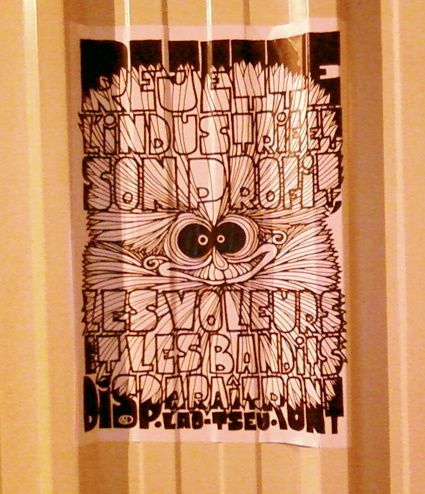 REJETTE
L'iNDUSTRiE ET
SON PROFiT
LES VOLEURS
ET LES BANDiTS
DiSPARAÎTRONT
LAO-TSEU